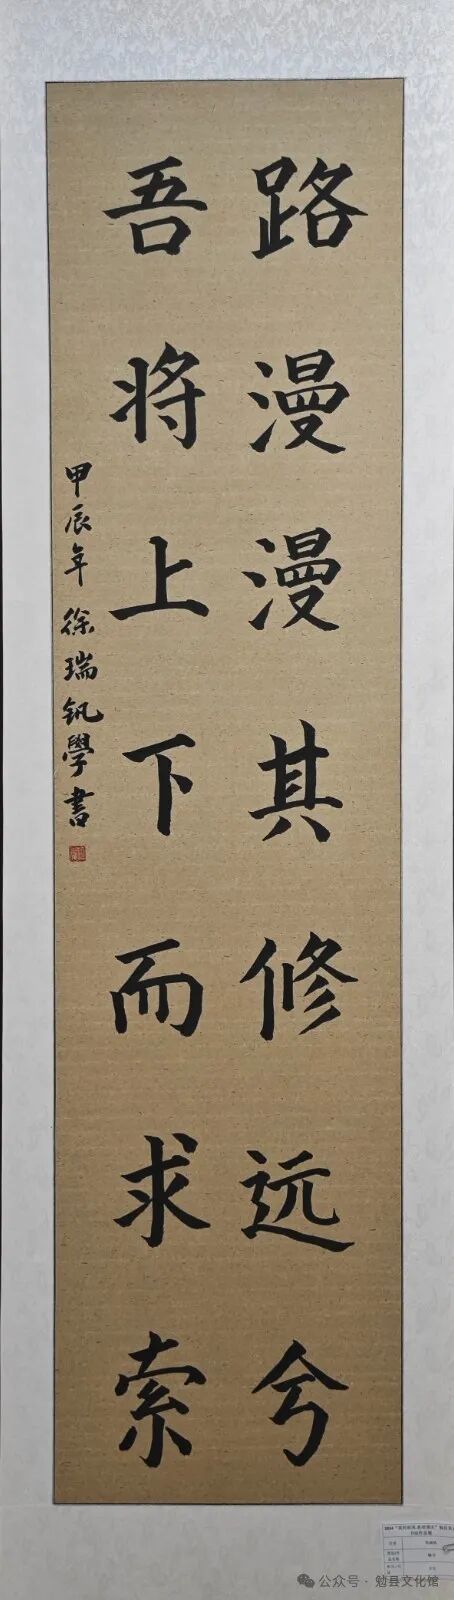 路漫漫其修远兮
吾将上下而求索
甲辰年徐瑞釩學書
公众号·勉县文化馆